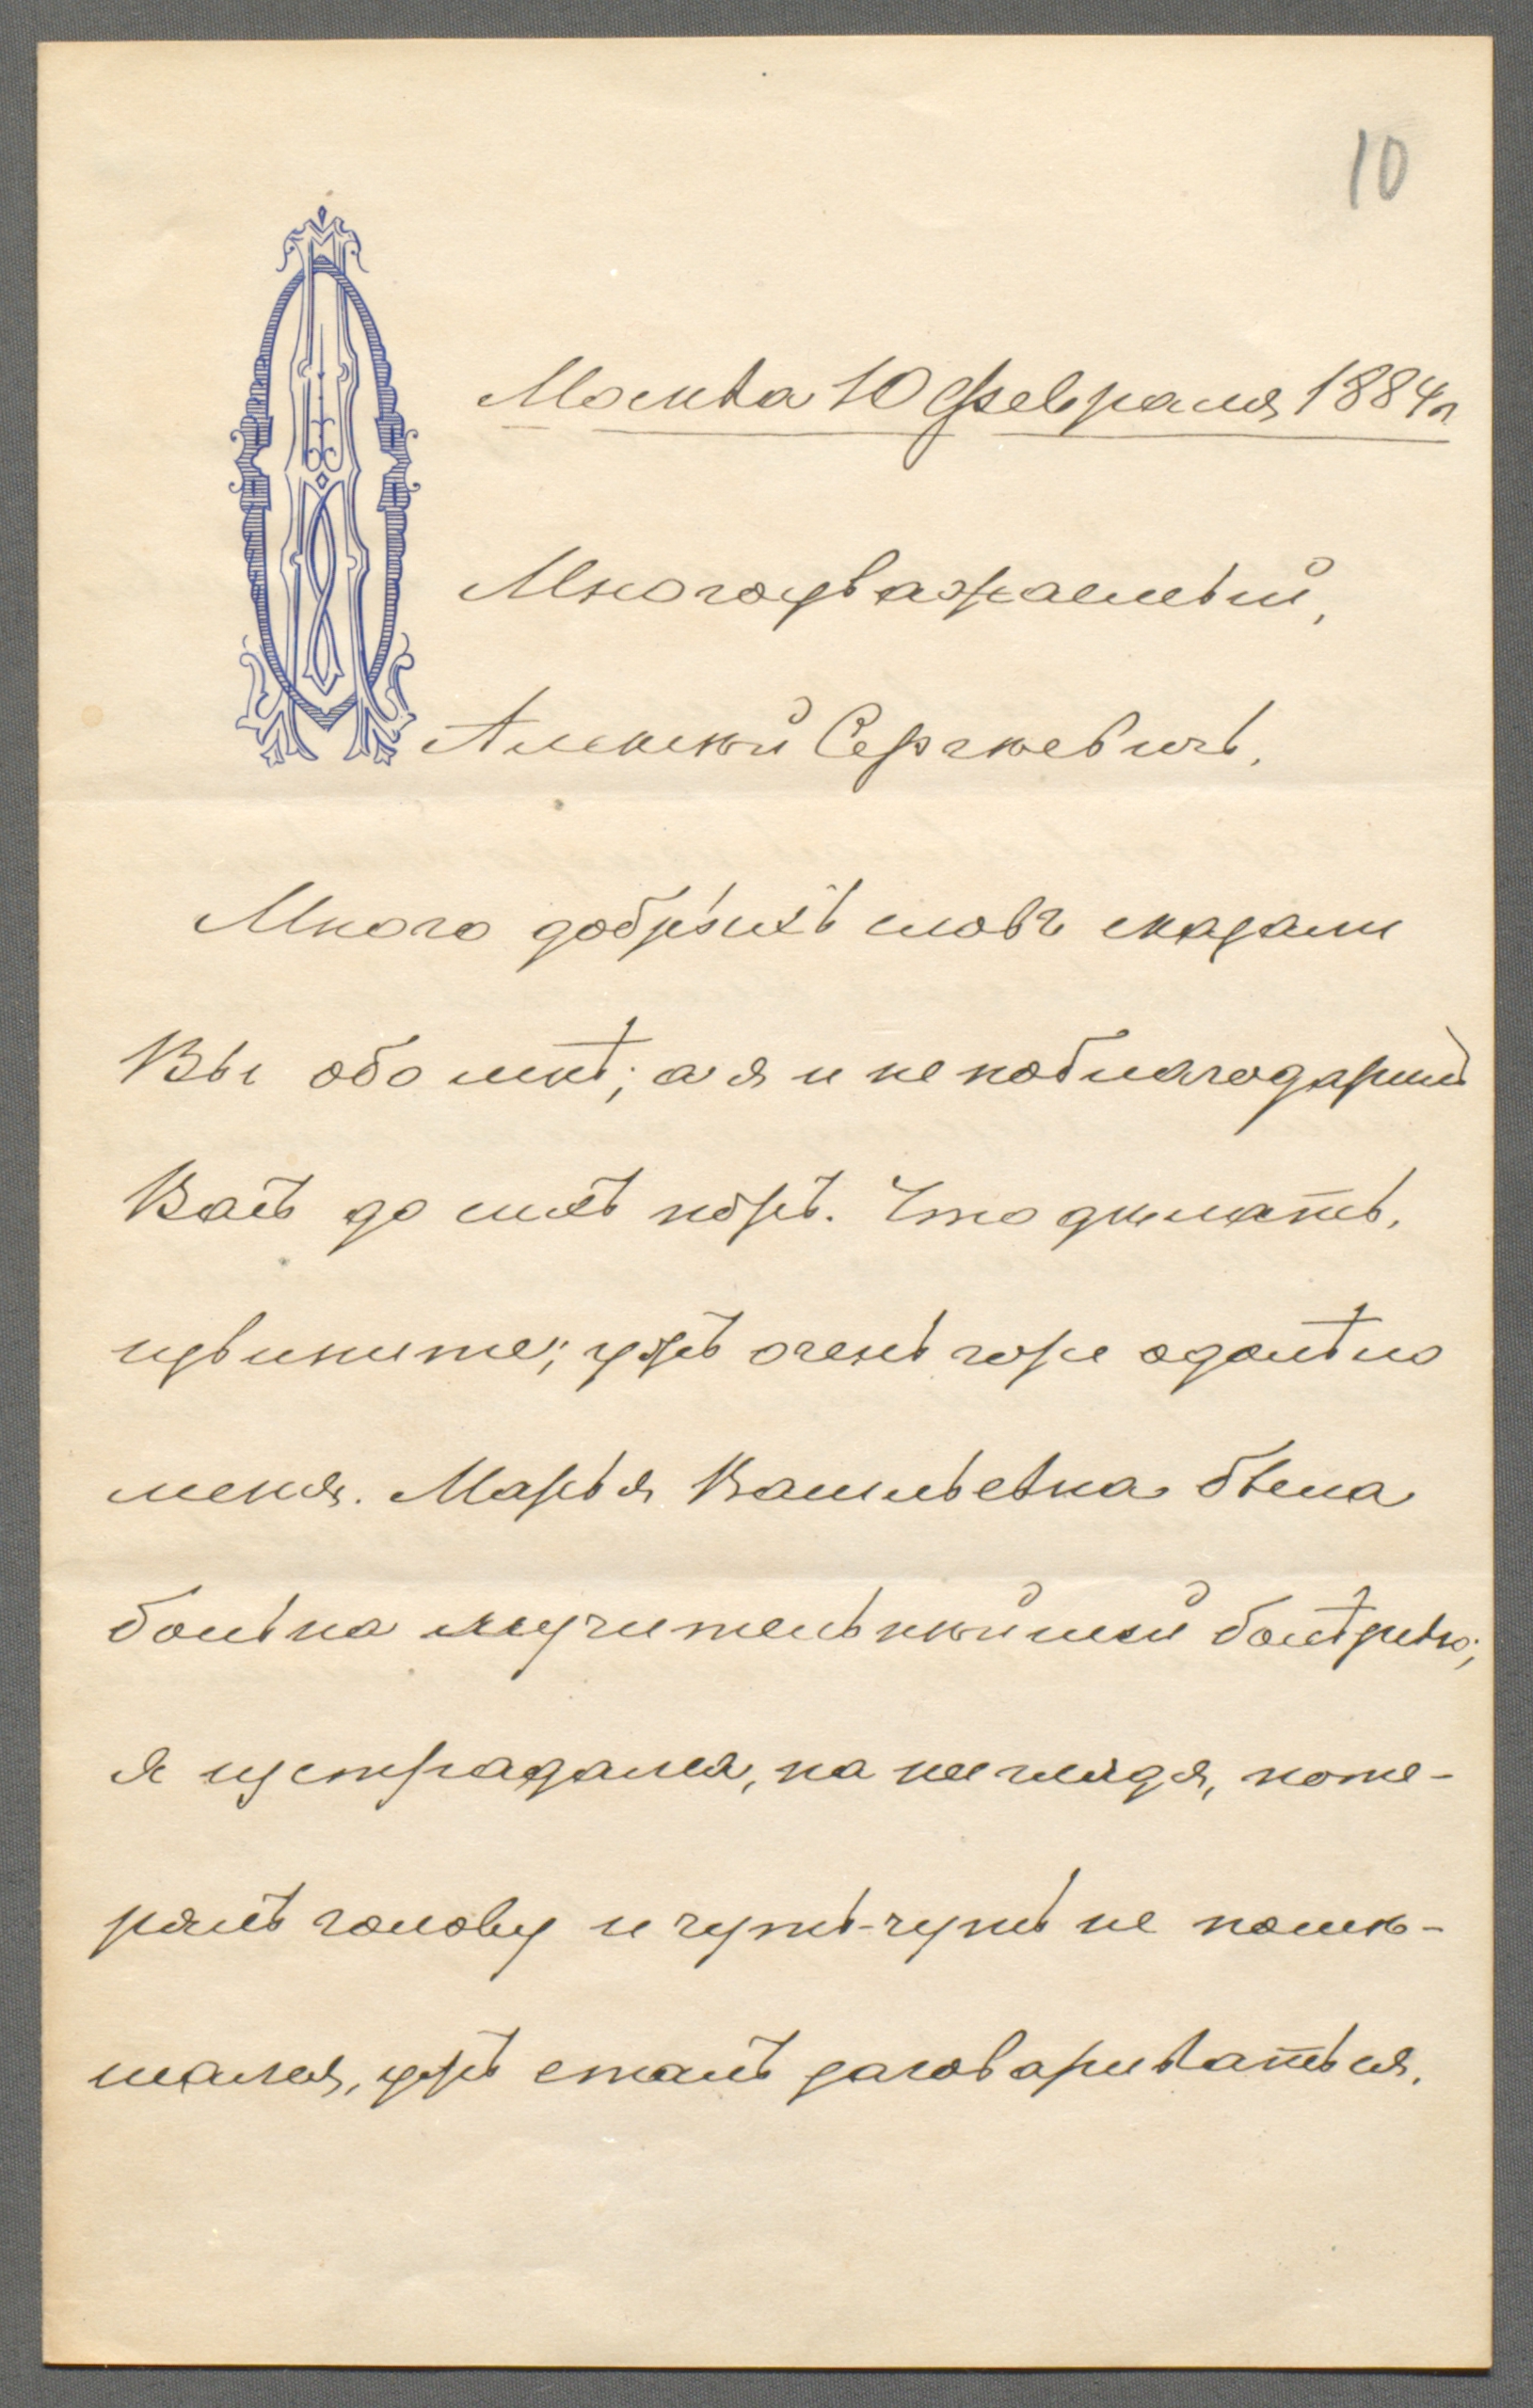 10
Москва 10 февраля 1884 г
Многоуважаемый,
Алексѣй Сергѣевичъ.
Много добрыхъ словъ сказали
Вы обо мнѣ; а я и не поблагодарилъ
Васъ до сихъ поръ. Что дѣлать,
извините; ужъ очень горе одолѣло
меня. Марья Васильевна была
больна мучительнѣйшей болѣзнью;
я изстрадался, на нее глядя, поте-
рялъ голову и чуть-чуть не помѣ-
шался, ужъ сталъ заговариваться.